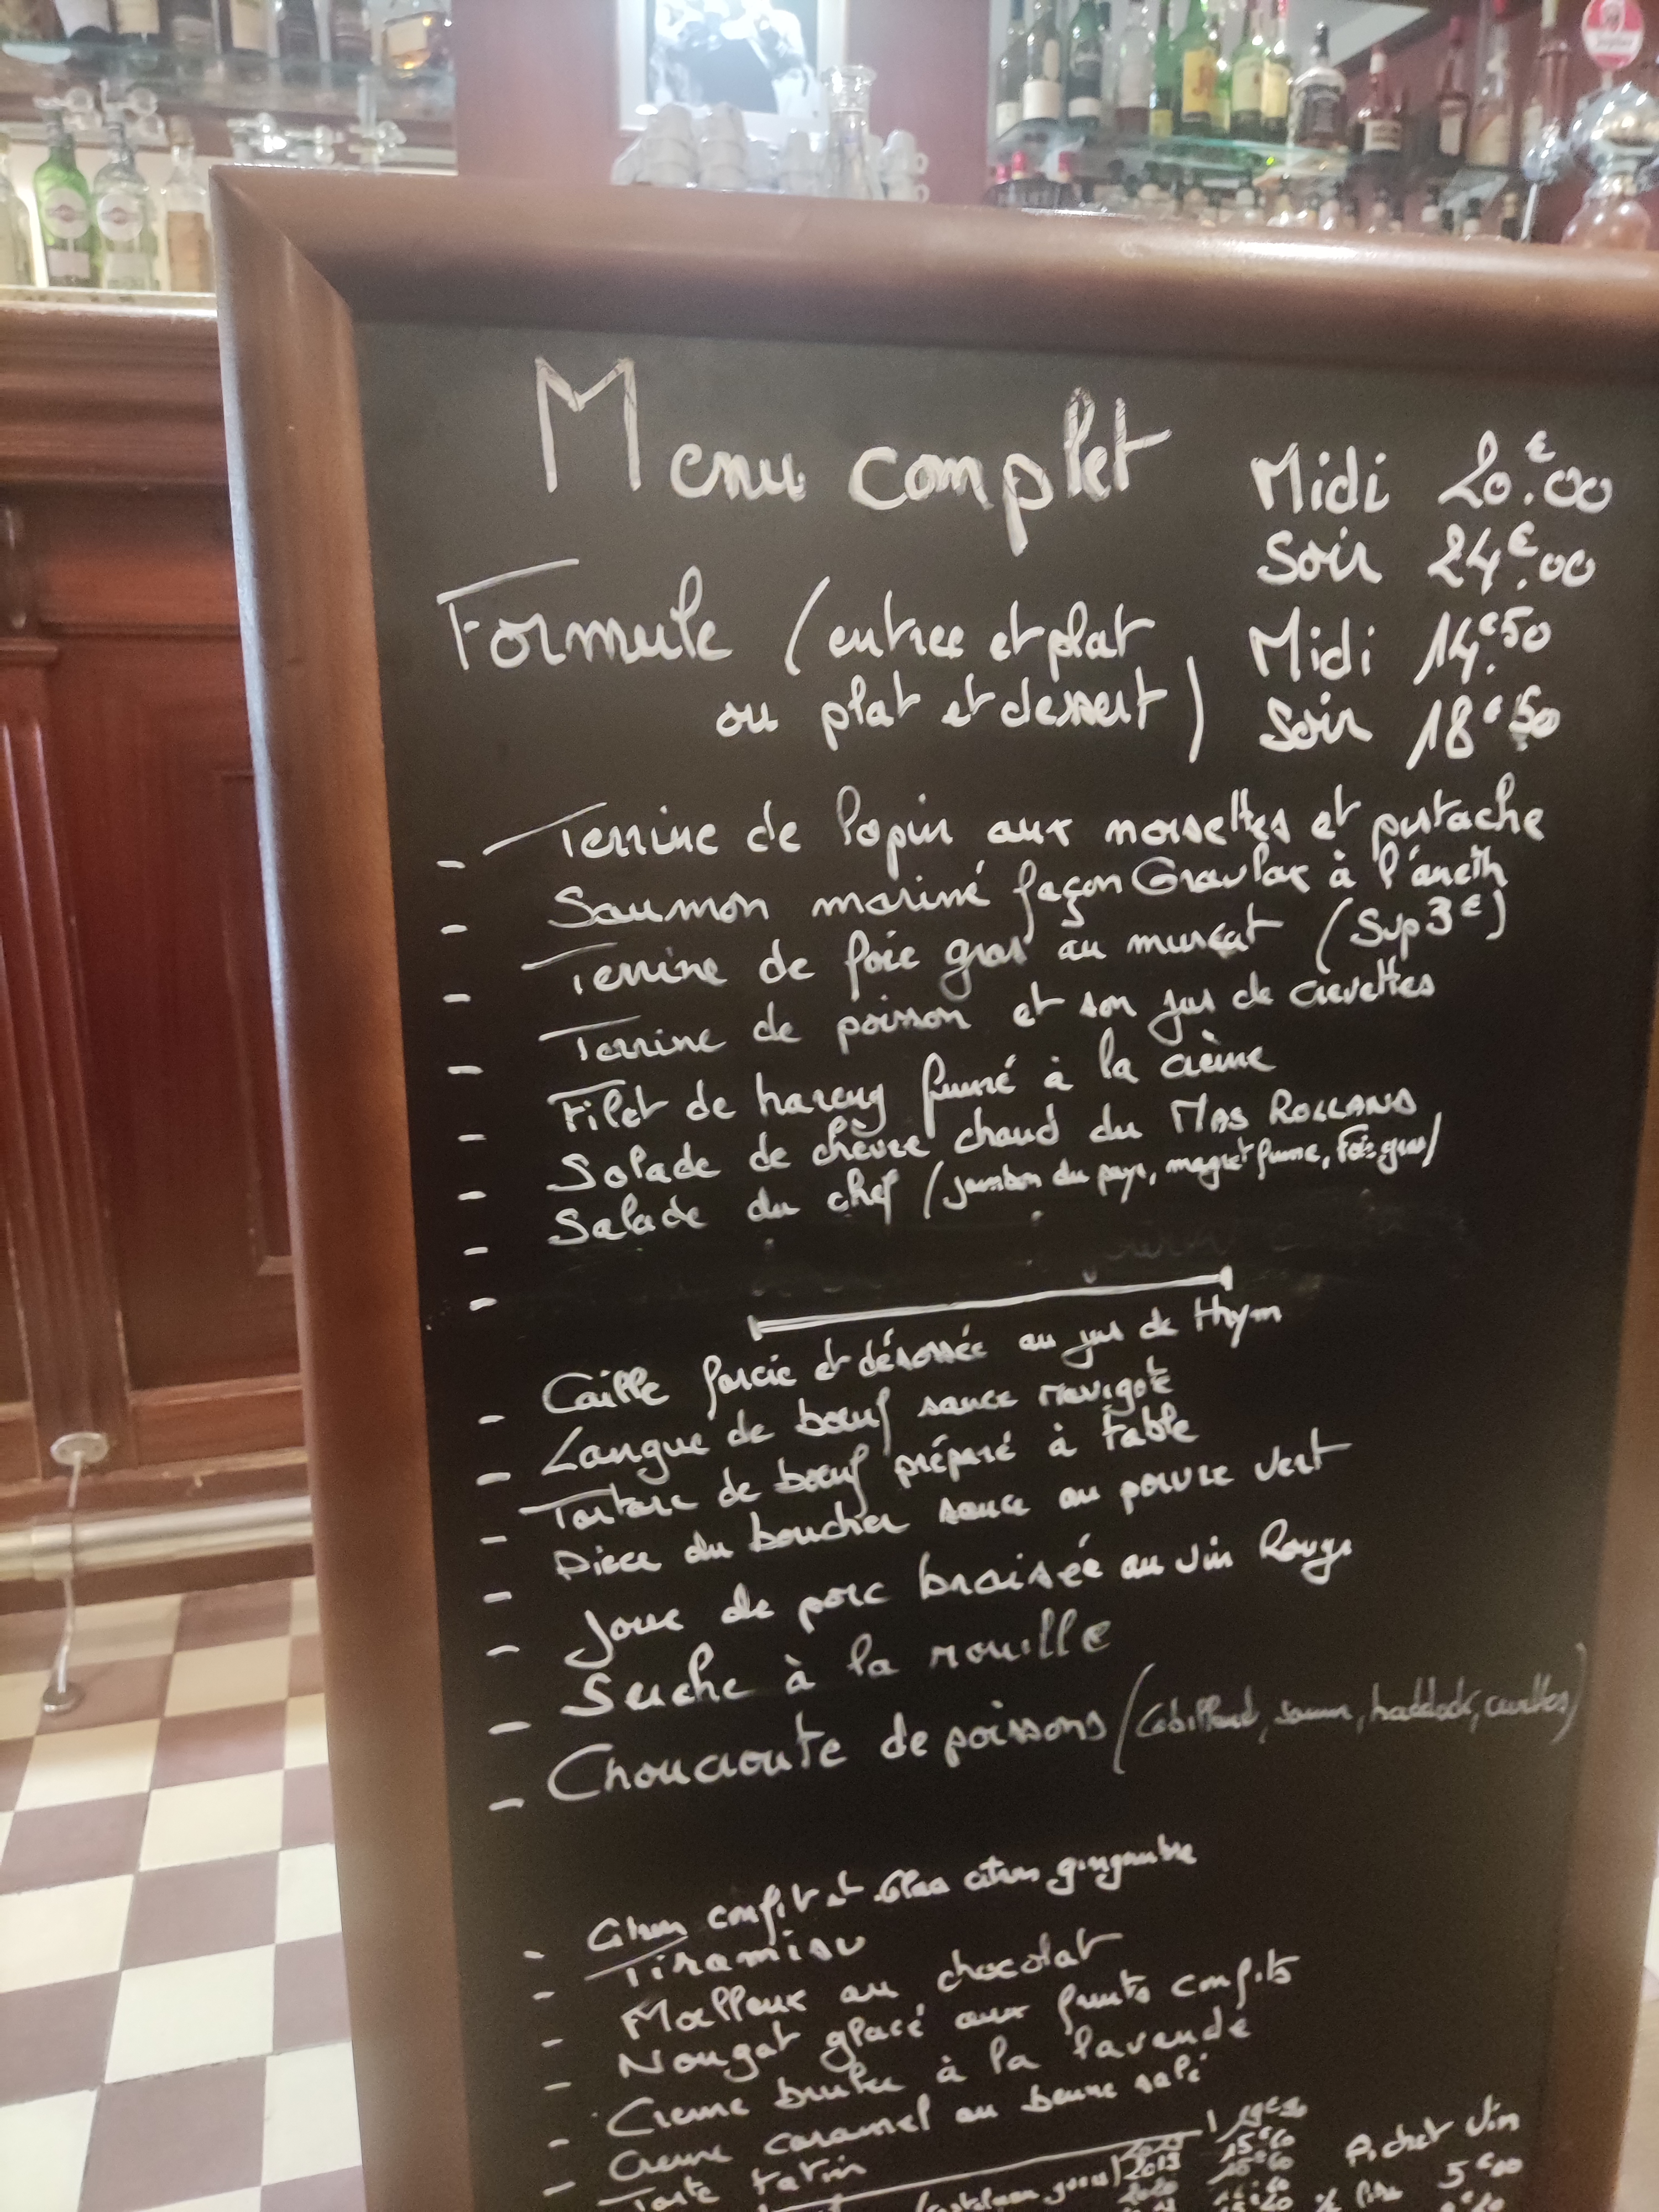 Menu complet Midi 20.€00
Soir 24.€00
Formule (entree et plat Midi 14.€50
ou plat et dessert) Soir 18€50
- Terrine de lapin aux noisettes et pistache
- Saumon mariné façon Gravlax à l'aneth
- Terrine de foie gras au muscat (Sup 3€)
- Terrine de poisson et son jus de crevettes
- Filet de hareng fumé à la crème
- Salade de chèvre chaud du MAS ROLLAND
- Salade du chef (jambon du pays, magret fumé, Foie gras)
-
- Caille farcie et désossée au jus de thym
- Langue de bœuf sauce ravigote
- Tartare de bœuf préparé à table
- Piece du boucher sauce au poivre vert
- Joue de porc braisée au vin Rouge
- Seiche à la rouille
- Choucroute de poissons (Cabillaud, saumon, haddock, crevettes)
- Citron confit et glace citron gingembre
- Tiramisu
- Moelleux au chocolat
- Nougat glacé aux fruits confits
- Creme brulee à la lavande
- Creme caramel au beurre salé
Tarte tatin
Pichet Vin
5€00